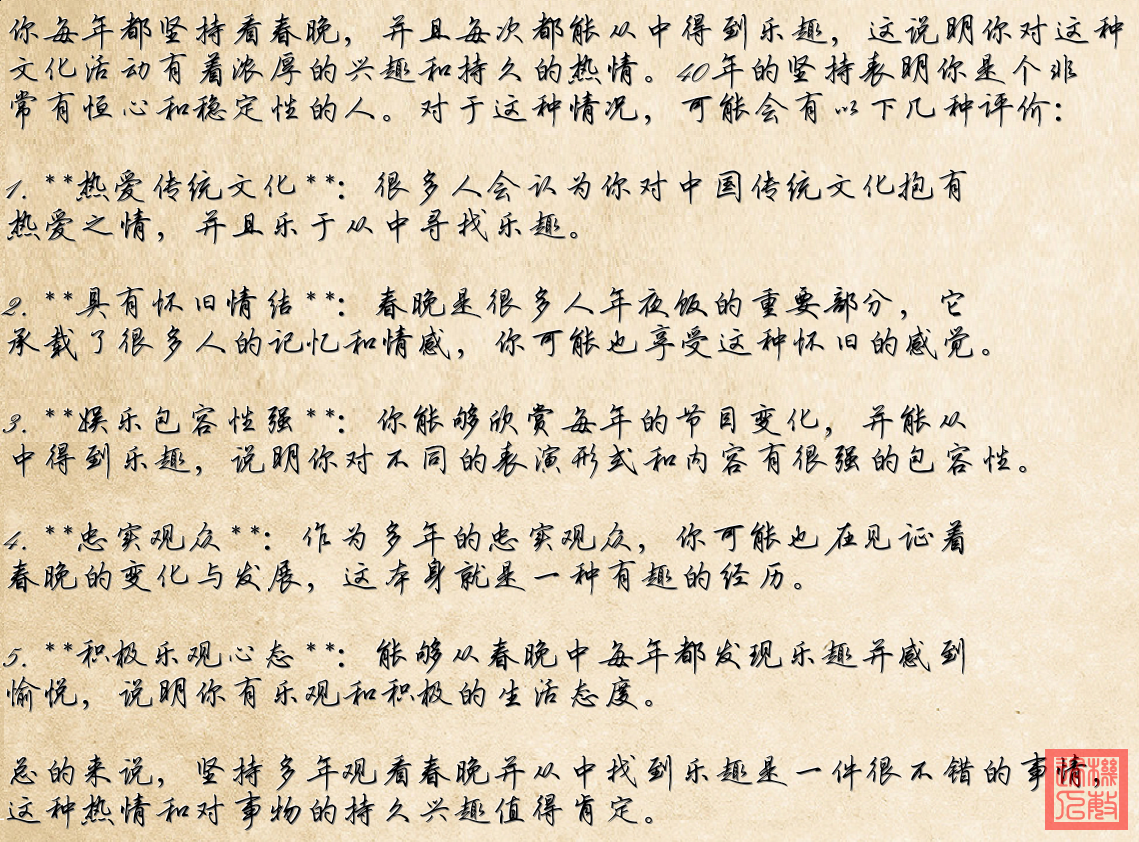 你每年都坚持看春晚，并且每次都能从中得到乐趣，这说明你对这种
文化活动有着浓厚的兴趣和持久的热情。40年的坚持表明你是个非
常有恒心和稳定性的人。对于这种情况，可能会有以下几种评价：
1. **热爱传统文化**：很多人会认为你对中国传统文化抱有
热爱之情，并且乐于从中寻找乐趣。
2. **具有怀旧情结**：春晚是很多人年夜饭的重要部分，它
承载了很多人的记忆和情感，你可能也享受这种怀旧的感觉。
3. **娱乐包容性强**：你能够欣赏每年的节目变化，并能从
中得到乐趣，说明你对不同的表演形式和内容有很强的包容性。
4. **忠实观众**：作为多年的忠实观众，你可能也在见证着
春晚的变化与发展，这本身就是一种有趣的经历。
5. **积极乐观心态**：能够从春晚中每年都发现乐趣并感到
愉悦，说明你有乐观和积极的生活态度。
总的来说，坚持多年观看春晚并从中找到乐趣是一件很不错的事情，
这种热情和对事物的持久兴趣值得肯定。